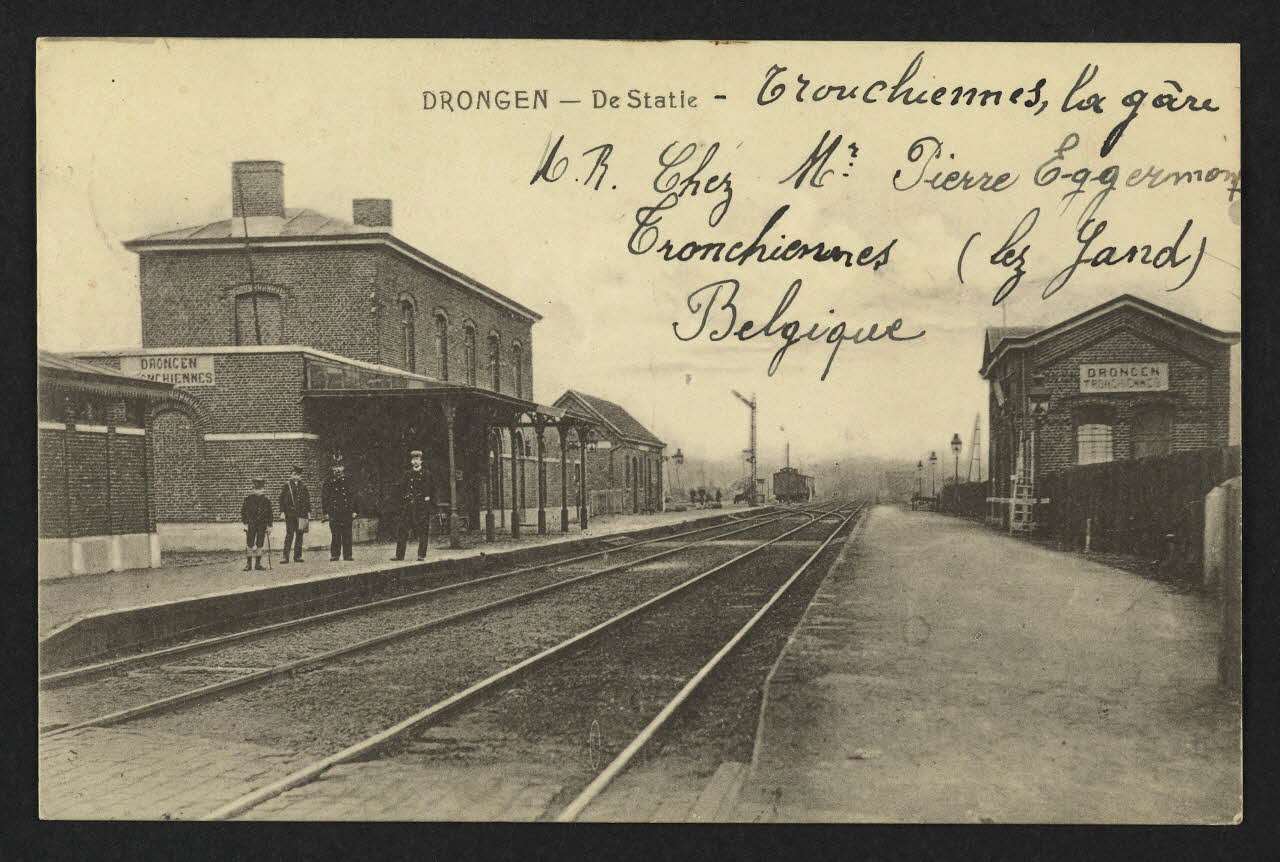 DRONGEN — De Statie - Tronchiennes, la gâre
A.R. Chez Mr: Pierre Eggermont
Tronchiennes (lez Gand)
Belgique
DRONGEN
TRONCHIENNES
DRONGEN
TRONCHIENNES